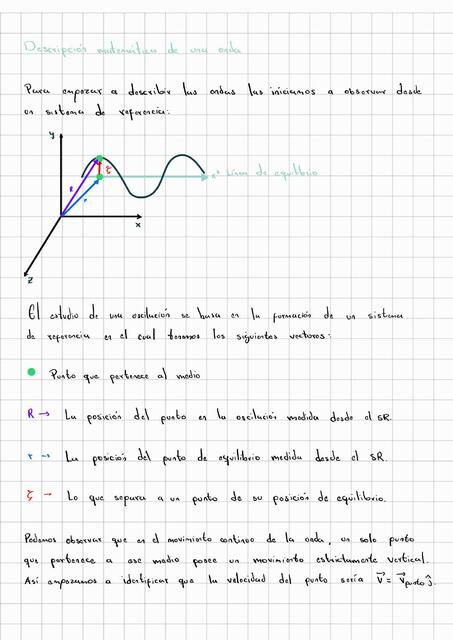 Descripción matemática de una onda
Para empezar a describir las ondas las iniciamos a observar desde
un sistema de referencia:
y
ξ
x* Línea de equilibrio
R
r
x
z
El estudio de una oscilación se basa en la formación de un sistema
de referencia en el cual tenemos los siguientes vectores:
Punto que pertenece al medio
R → La posición del punto en la oscilación medida desde el SR.
r → La posición del punto de equilibrio medida desde el SR.
ξ → Lo que separa a un punto de su posición de equilibrio.
Podemos observar que en el movimiento continuo de la onda, un solo punto
que pertenece a ese medio posee un movimiento estrictamente vertical.
Así empezamos a identificar que la velocidad del punto sería V⃗ = V⃗punto ĵ.